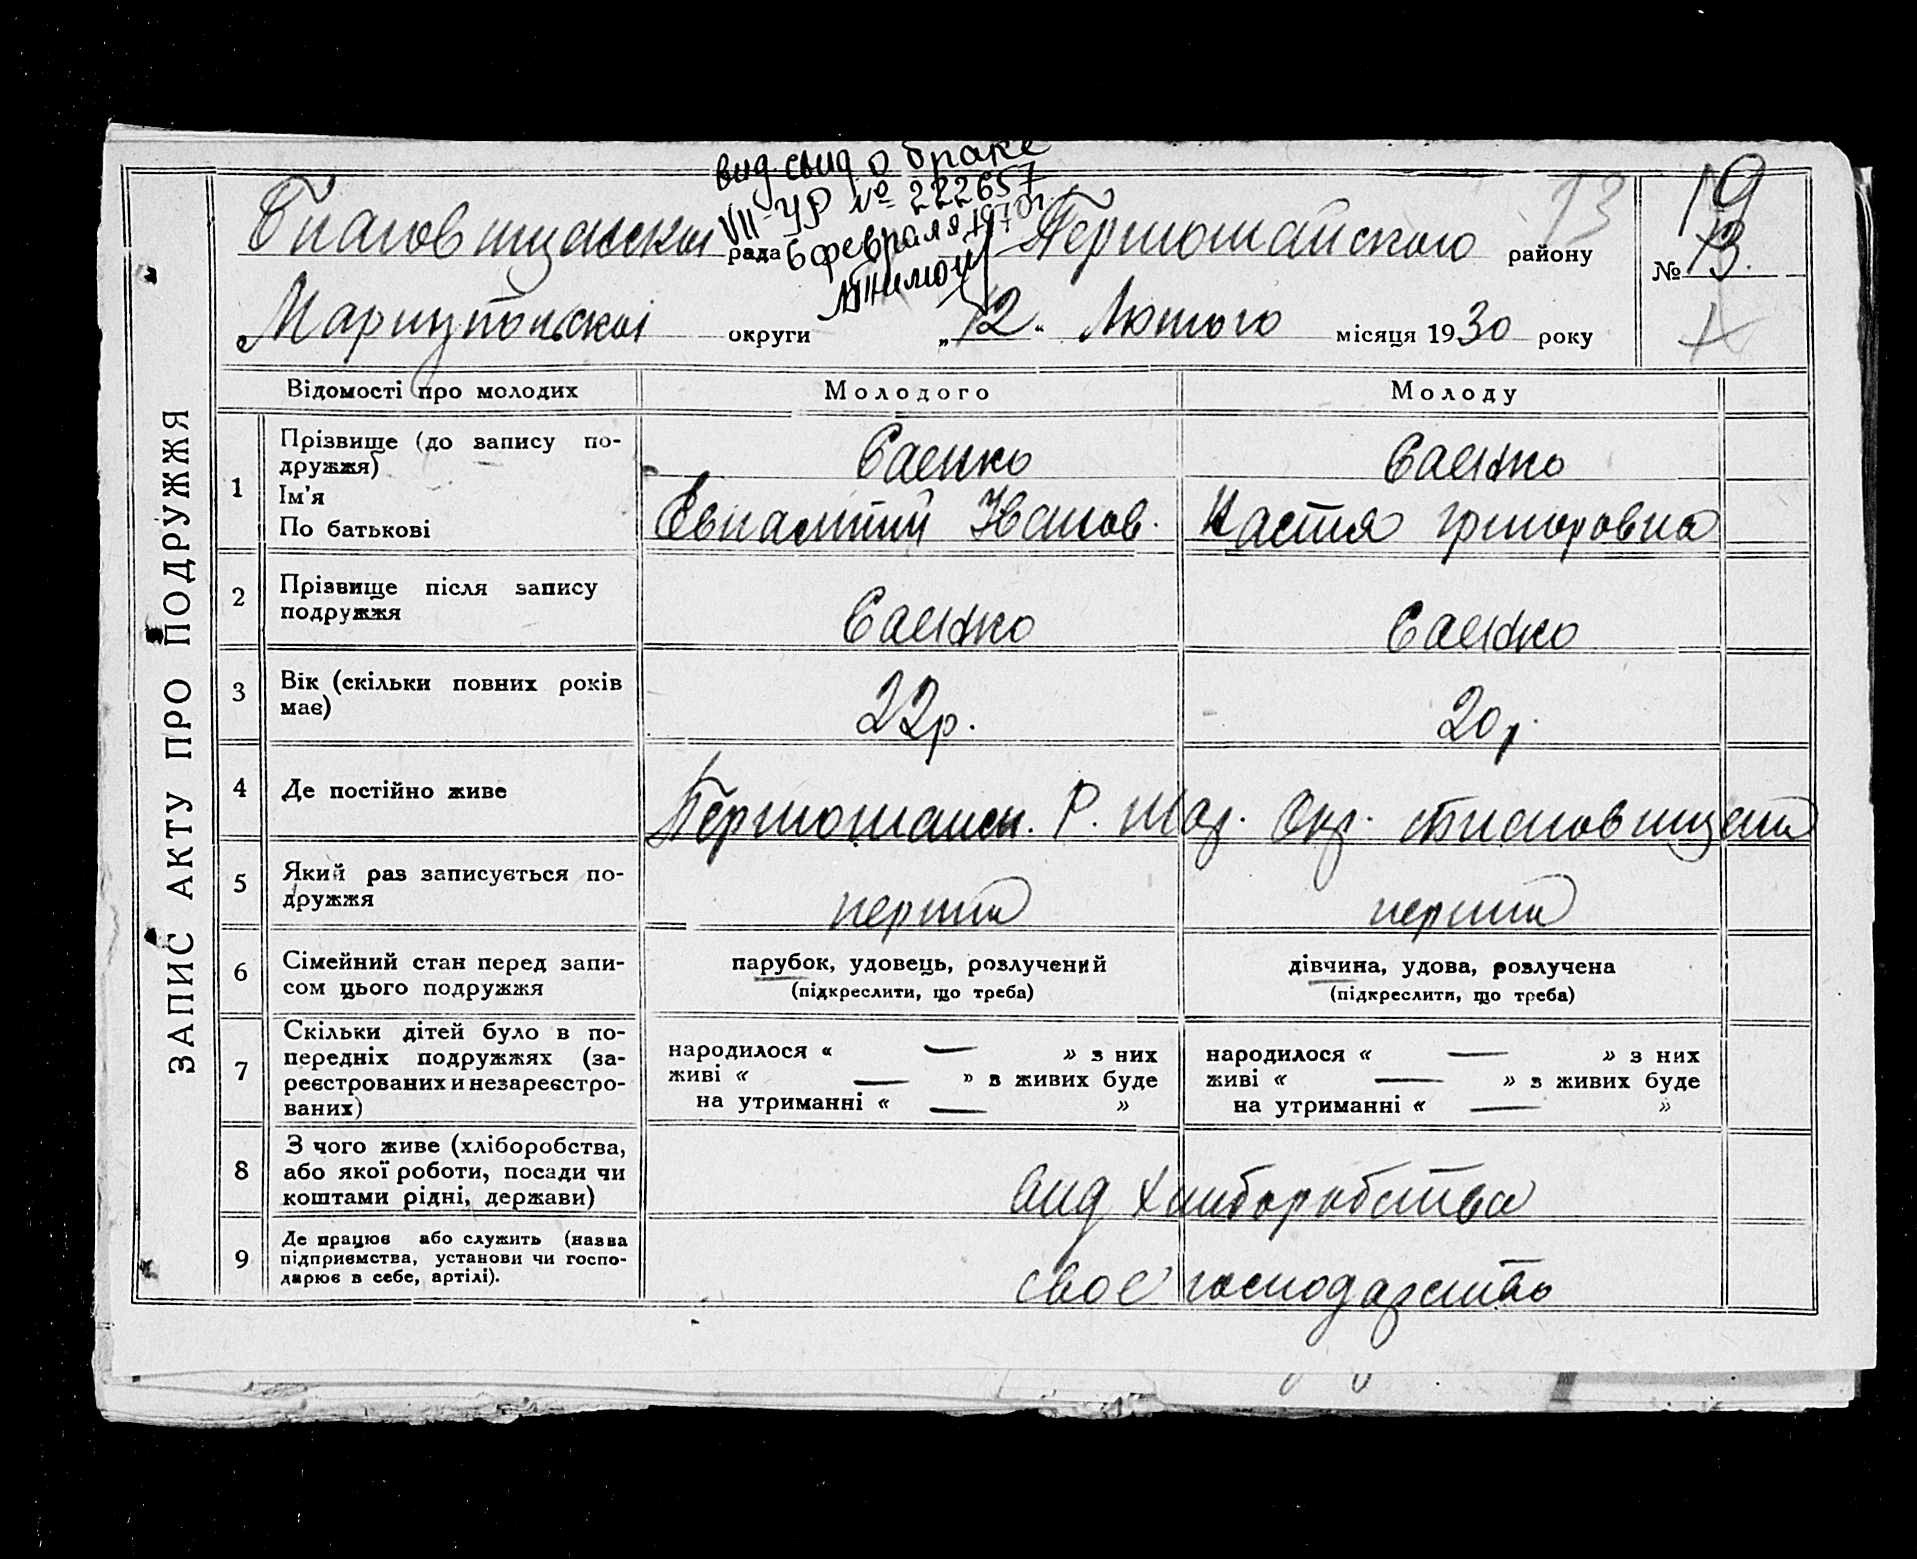 вид. свид о браке
VII-УР № 222657
6 февраля 1970г
Благовищенской рада Першомайского району
13
19
№ 13.
Мариупольскої округи „12“ Лютого місяця 1930 року
Відомості про молодих
Молодого
Молоду
ЗАПИС АКТУ ПРО ПОДРУЖЖЯ
1
Прізвище (до запису по-
дружжя)
Ім'я
По батькові
Саенко
Евпамтий Іванов.
Саенко
Настя Григоровна
2
Прізвище після запису
подружжя
Саенко
Саенко
3
Вік (скільки повних років
має)
22р.
20р.
4
Де постійно живе
Першомаисн. Р. Мар. Окр.
5
Який раз записується по-
дружжя
перший
перший
6
Сімейний стан перед запи-
сом цього подружжя
парубок, удовець, розлучений
(підкреслити, що треба)
дівчина, удова, розлучена
(підкреслити, що треба)
7
Скільки дітей було в по-
передніх подружжях (за-
реєстрованих и незареєстро-
ваних)
народилося « — » з них
живі « — » з живих буде
на утриманні « — »
народилося « — » з них
живі « — » з живих буде
на утриманні « — »
8
З чого живе (хліборобства,
або якої роботи, посади чи
коштами рідні, держави)
вид хлиборобства
9
Де працює або служить (назва
підприємства, установи чи госпо-
дарює в себе, артілі).
своє господарство